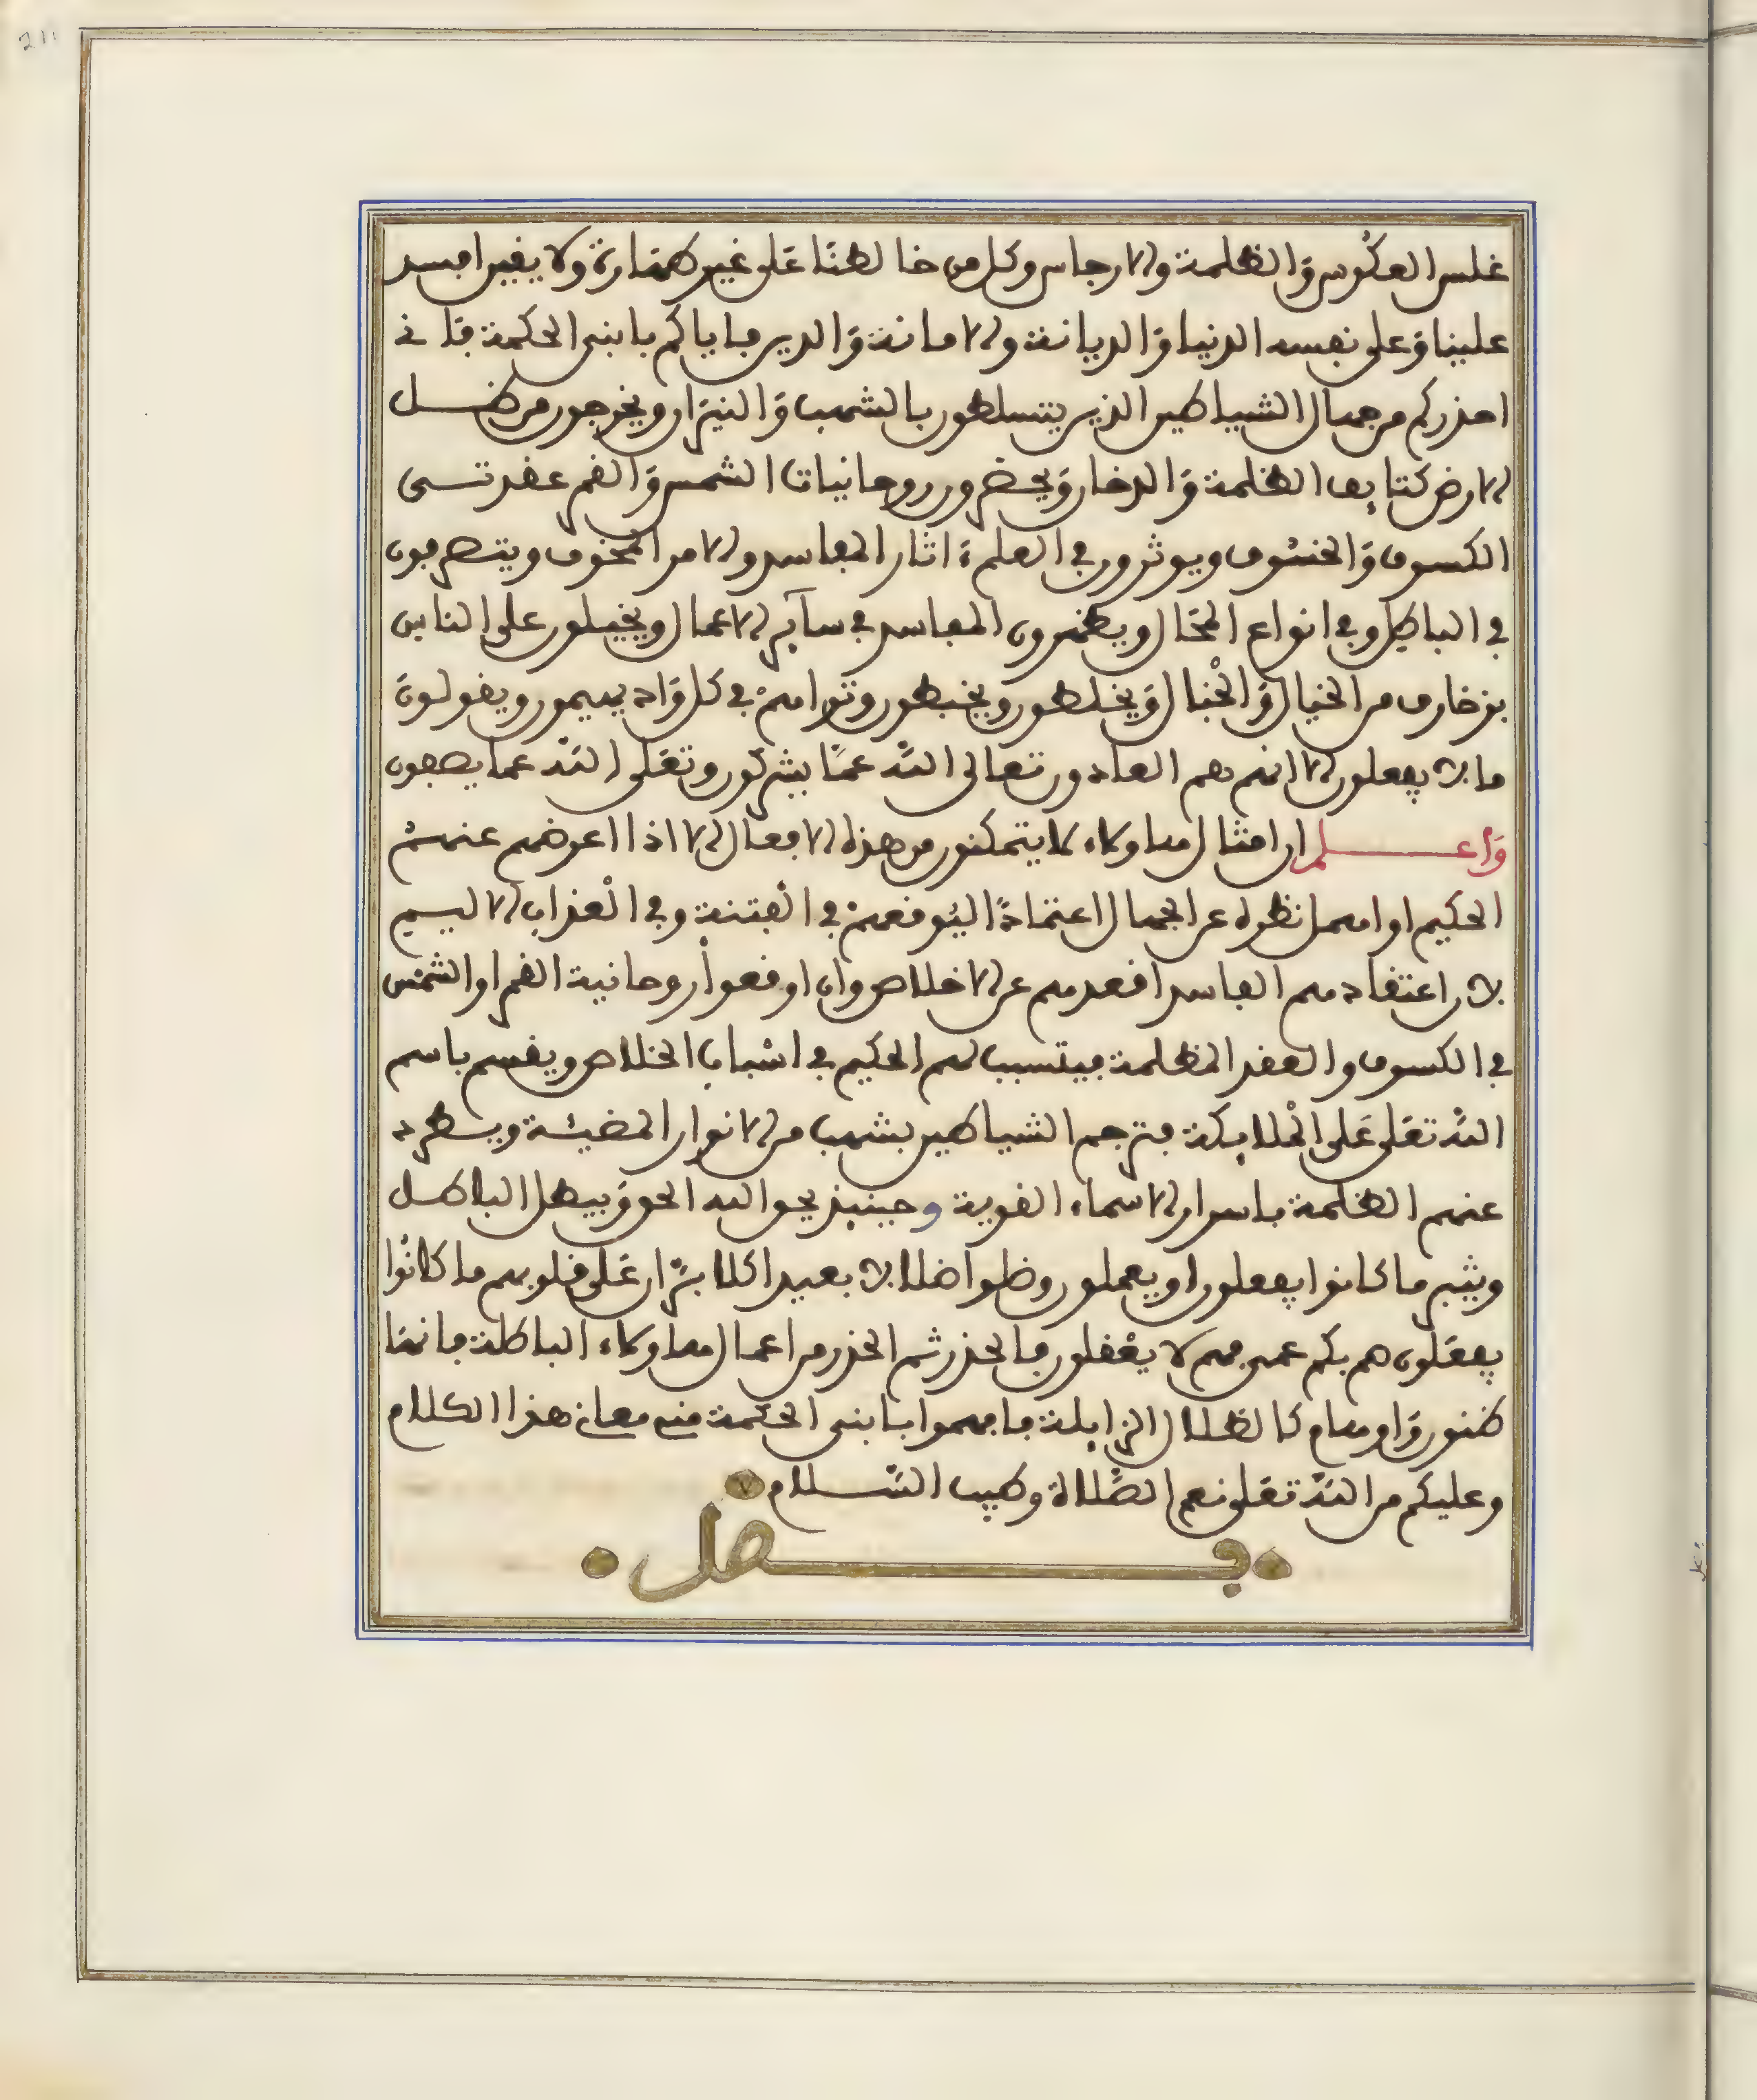 غلس العكوس والظلمة والارجاس وكل من خالطنا على غير طهارة ولا يقين افسد
علينا وعلى نفسه الدنيا والديانة والامانة والدين فاياكم يابني الحكمة فاني
احذركم من جهال الشياطين الذين يتسلطون بالشهب والنيران ويخرجون من ظل
الارض كتايف الظلمة والدخان ويحضرون روحانيات الشمس والقمر عقد تسى
الكسوف والخسوف ويوثرون في العلم اثار المفاسد والامر المخوف ويتصرفون
في الباطل وفي انواع المحال ويظهرون المفاسد في ساير الاعمال ويخيلون على الناس
بزخارف من الخيال والخبال ويخلطون ويخبطون وتراهم في كل واد يهيمون ويقولون
ما لا يفعلون الا انهم هم العادون تعالى الله عما يشركون وتعلى الله عما يصفون
واعلم ان امثال هاولاء لا يتمكنون من هذه الافعال الا اذا اعرض عنهم
الحكيم او اهمل نظره عن الجهال اعتمادا ليوقعهم في الفتنة وفي العذاب الاليم
لان اعتقادهم الفاسد اقعدهم عن الاخلاص وان اوقعوا روحانية القمر او الشمس
في الكسوف والعقد المظلمة فيتسبب لهم الحكيم في اسباب الخلاص ويقسم باسم
الله تعلى على الملايكة فترجم الشياطين بشهب من الانوار المضيئة ويطرد
عنهم الظلمة باسرار الاسماء القوية وحينيذ يحق الله الحق ويبطل الباطل
ويتبر ما كانوا يفعلون او يعملون وضلوا ضلالا بعيدا كلا بل ران على قلوبهم ما كانوا
يفعلون صم بكم عمي فهم لا يعقلون فالحذر ثم الحذر من اعمال هاولاء الباطلة فانها
ظنون واوهام كالظلال الزايلة فافهموا يابني الحكمة مني معاني هذا الكلام
وعليكم من الله تعلى نعم الصلاة وطيب السلام
فصل
211